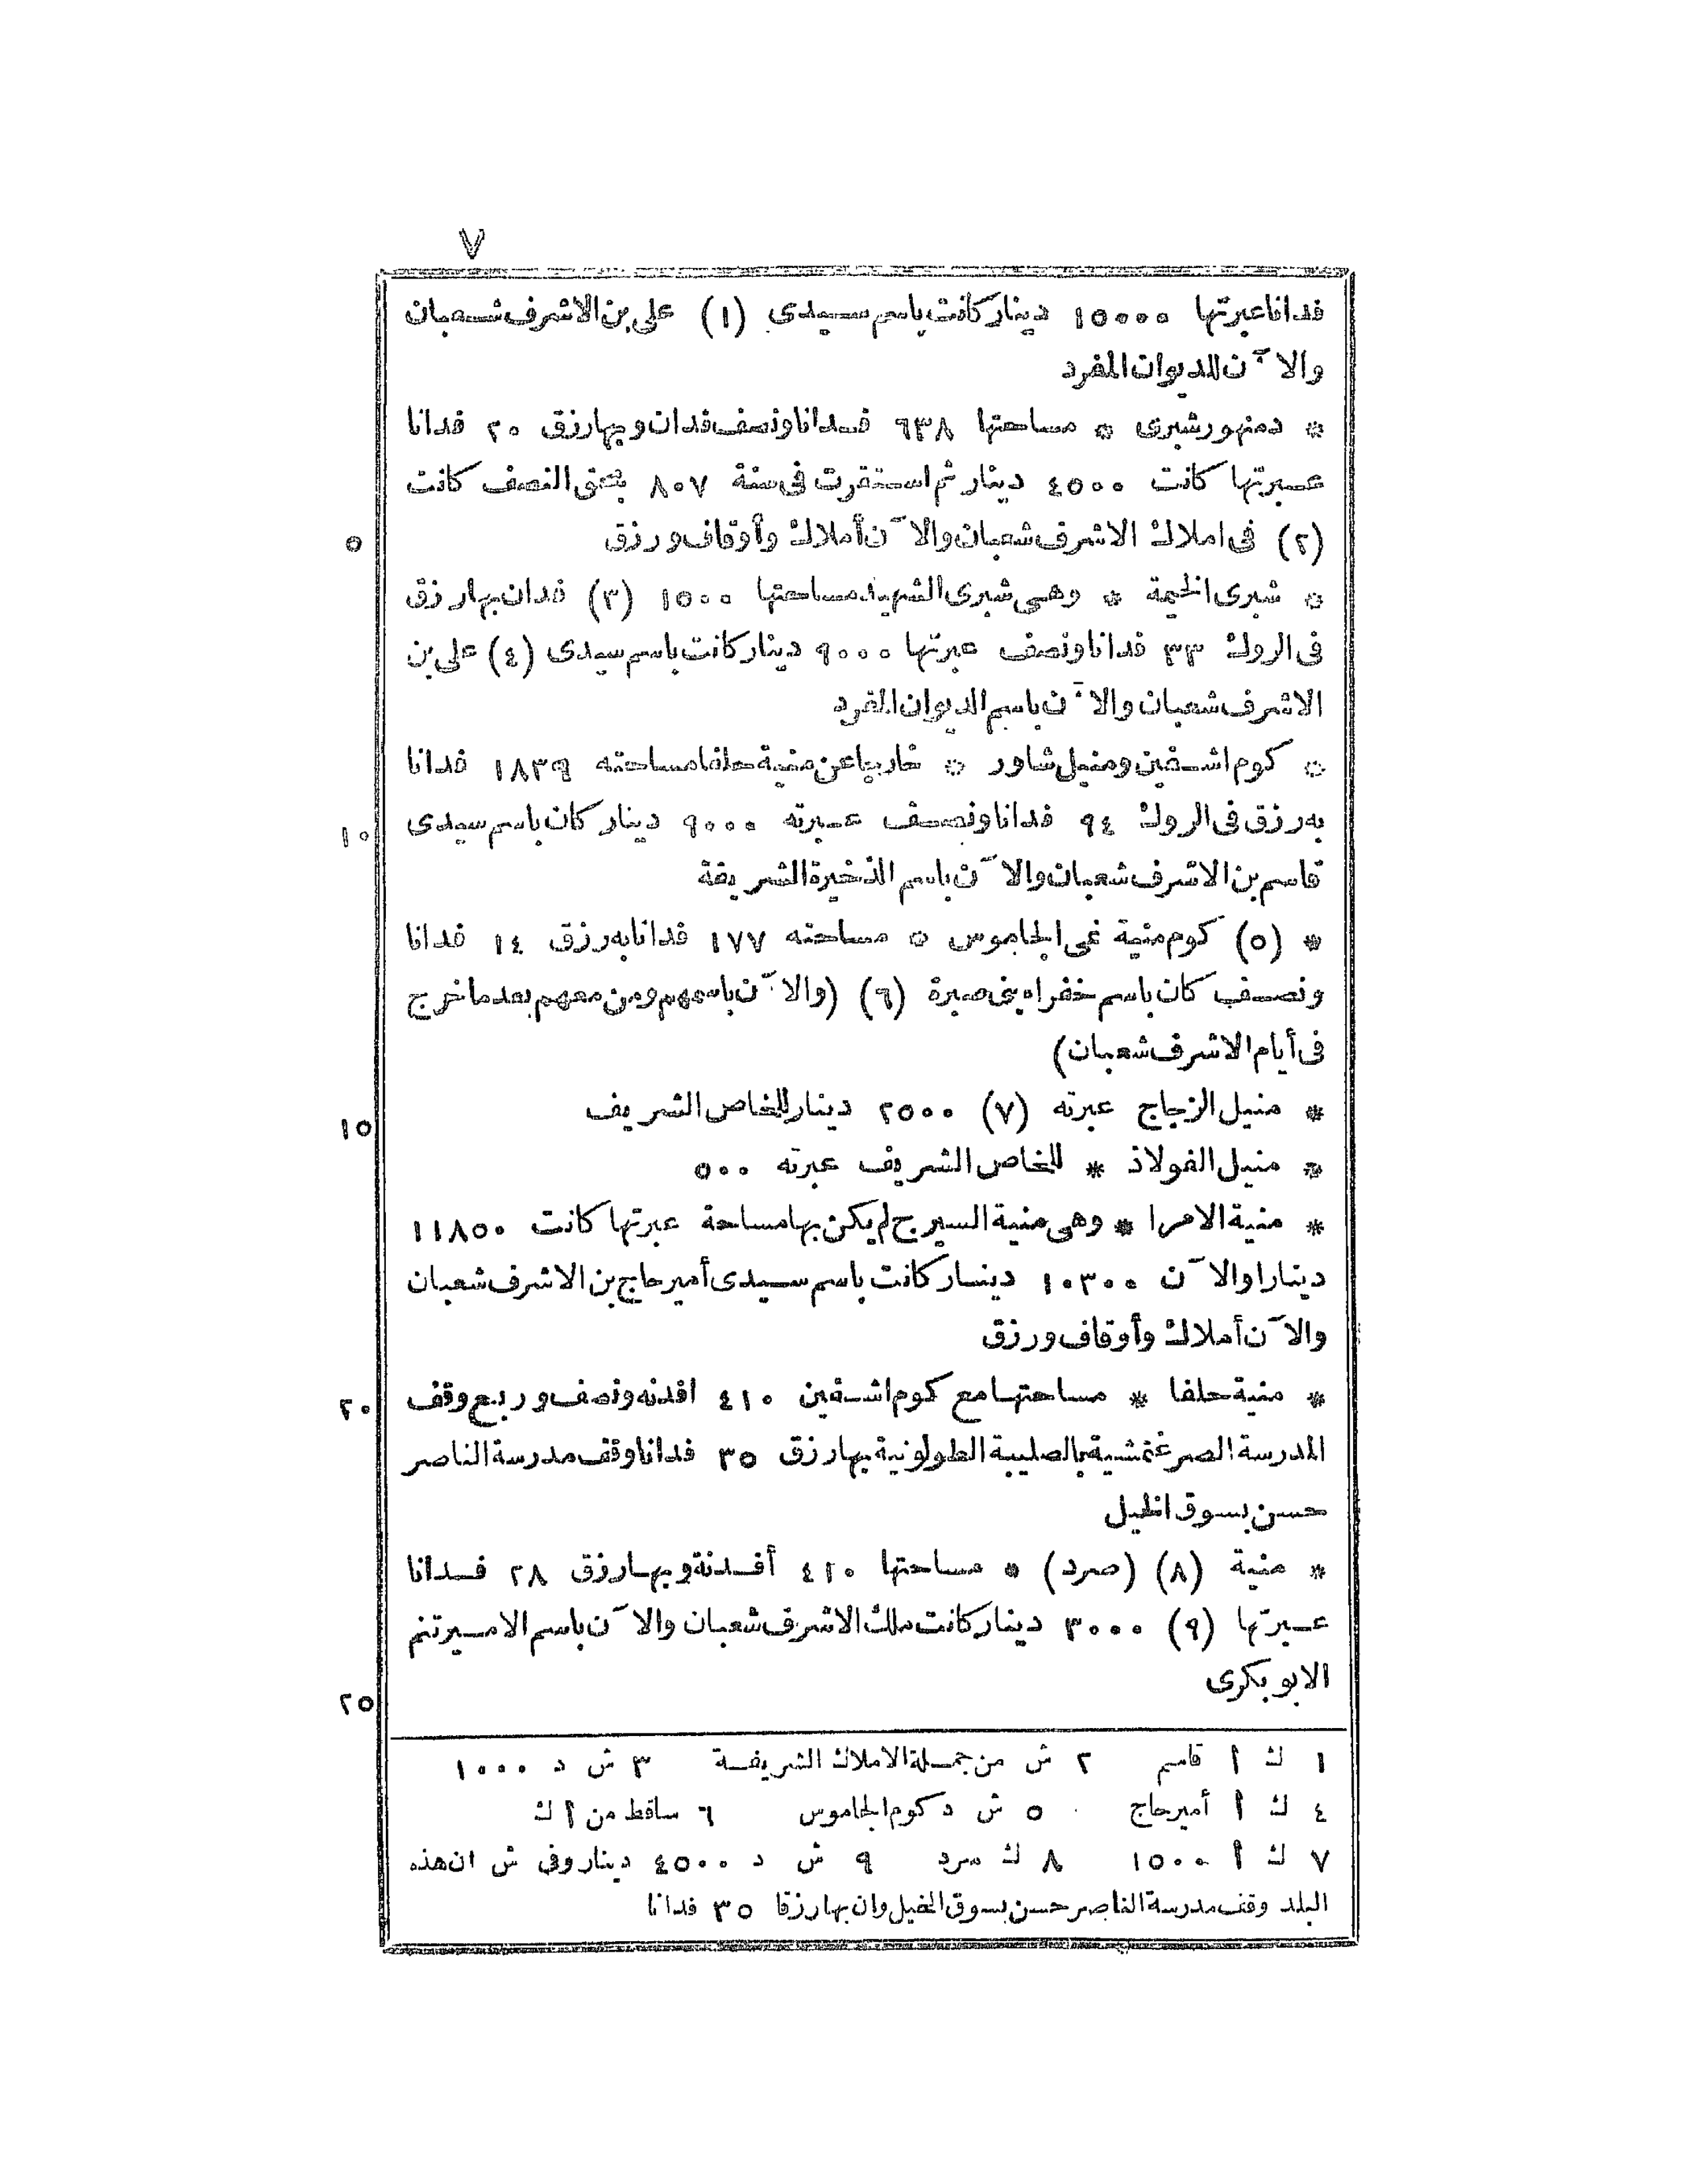 ٧
فدانا عبرتها ١٥٠٠٠ دينار كانت باسم سيدى (١) على بن الاشرف شعبان
والآن للديوان المفرد
* دمنهور شبرى * مساحتها ٦٣٨ فدانا ونصف فدان وبها رزق ٢٠ فدانا
عبرتها كانت ٤٥٠٠ دينار ثم استقرت فى سنة ٨٠٧ بحق النصف كانت
٥ (٢) فى املاك الاشرف شعبان والآن أملاك وأوقاف ورزق
* شبرى الخيمة * وهى شبرى الشهيد مساحتها ١٥٠٠ (٣) فدان بها رزق
فى الروك ٣٣ فدانا ونصف عبرتها ٩٠٠٠ دينار كانت باسم سيدى (٤) على بن
الاشرف شعبان والآن باسم الديوان المفرد
* كوم اشفين ومنيل شاور * خارجا عن منية حلفا مساحته ١٨٣٩ فدانا
١٠ به رزق فى الروك ٩٤ فدانا ونصف عبرته ٩٠٠٠ دينار كان باسم سيدى
قاسم بن الاشرف شعبان والآن باسم الذخيرة الشريفة
* (٥) كوم منية غمى الجاموس * مساحته ١٧٧ فدانا به رزق ١٤ فدانا
ونصف كان باسم خفراء بنى صبرة (٦) (والآن باسمهم ومن معهم بعد ما خرج
فى أيام الاشرف شعبان)
١٥ * منيل الزجاج عبرته (٧) ٢٥٠٠ دينار للخاص الشريف
* منيل الفولاذ * للخاص الشريف عبرته ٥٠٠
* منية الامرا * وهى منية السيرج لم يكن بها مساحة عبرتها كانت ١١٨٥٠
دينارا والآن ١٠٣٠٠ دينار كانت باسم سيدى أمير حاج بن الاشرف شعبان
والآن أملاك وأوقاف ورزق
٢٠ * منية حلفا * مساحتها مع كوم اشفين ٤١٠ افدنه ونصف وربع وقف
المدرسة الصرغتمشية بالصليبة الطولونية بها رزق ٣٥ فدانا وقف مدرسة الناصر
حسن بسوق الخيل
* منية (٨) (صرد) * مساحتها ٤١٠ أفدنة وبها رزق ٢٨ فدانا
عبرتها (٩) ٣٠٠٠ دينار كانت ملك الاشرف شعبان والآن باسم الامير تنم
٢٥ الابو بكرى
١ ك أ قاسم ٢ ش من جملة الاملاك الشريفة ٣ ش د ١٠٠٠
٤ ك أ أمير حاج ٥ ش د كوم الجاموس ٦ ساقط من أ ك
٧ ك أ ١٥٠٠ ٨ ك سرد ٩ ش د ٤٥٠٠ دينار وفى ش ان هذه
البلد وقف مدرسة الناصر حسن بسوق الخيل وان بها رزقا ٣٥ فدانا